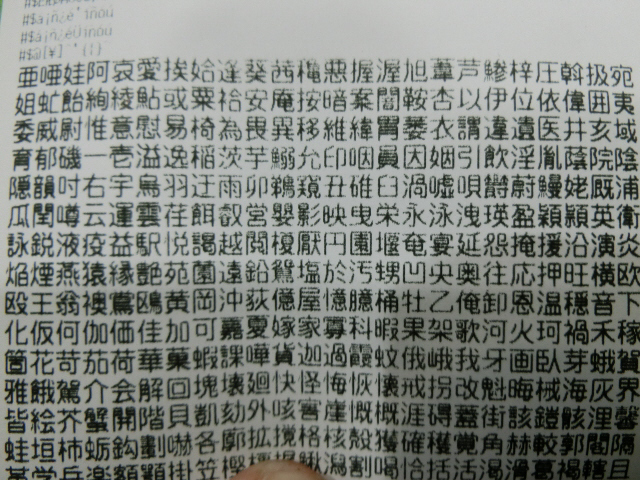 #$@[¥]^`{|}
亜唖娃阿哀愛挨姶逢葵茜穐悪握渥旭葦芦鯵梓圧斡扱宛
姐虻飴絢綾鮎或粟袷安庵按暗案闇鞍杏以伊位依偉囲夷
委威尉惟意慰易椅為畏異移維緯胃萎衣謂違遺医井亥域
育郁磯一壱溢逸稲茨芋鰯允印咽員因姻引飲淫胤蔭院陰
隠韻吋右宇烏羽迂雨卯鵜窺丑碓臼渦嘘唄欝蔚鰻姥厩浦
瓜閏噂云運雲荏餌叡営嬰影映曳栄永泳洩瑛盈穎頴英衛
詠鋭液疫益駅悦謁越閲榎厭円園堰奄宴延怨掩援沿演炎
焔煙燕猿縁艶苑薗遠鉛鴛塩於汚甥凹央奥往応押旺横欧
殴王翁襖鴬鴎黄岡沖荻億屋憶臆桶牡乙俺卸恩温穏音下
化仮何伽価佳加可嘉夏嫁家寡科暇果架歌河火珂禍禾稼
箇花苛茄荷華菓蝦課嘩貨迦過霞蚊俄峨我牙画臥芽蛾賀
雅餓駕介会解回塊壊廻快怪悔恢懐戒拐改魁晦械海灰界
皆絵芥蟹開階貝凱劾外咳害崖慨概涯碍蓋街該鎧骸浬馨
蛙垣柿蛎鈎劃嚇各廓拡撹格核殻獲確穫覚角赫較郭閣隔
革学岳楽額顎掛笠樫 鰍潟割喝恰括活渇滑葛褐轄且